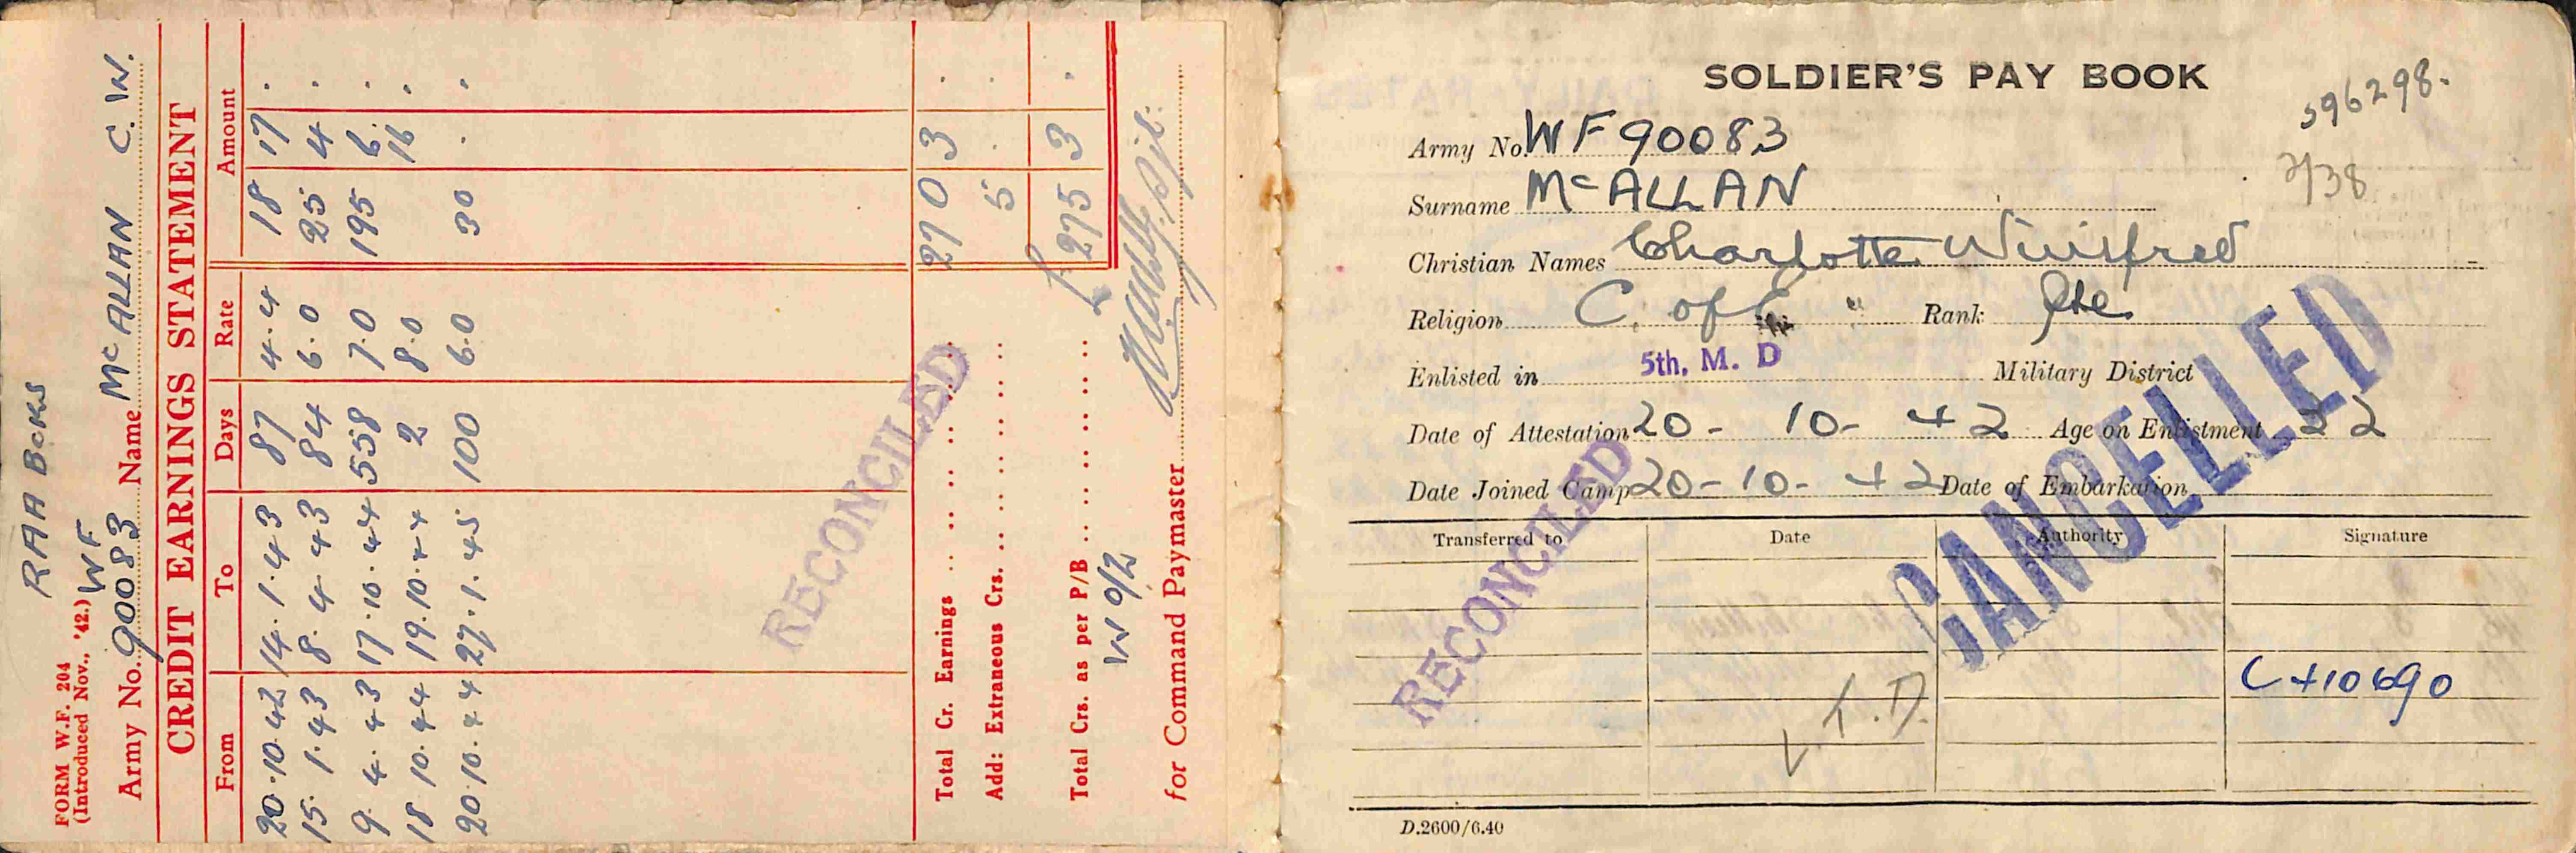 RAA Bcks
FORM W.F. 204
(Introduced Nov., '42.)
WF
Army No. 90083 Name McALLAN C. W.
CREDIT EARNINGS STATEMENT
From To Days Rate Amount
20.10.42 14.1.43 87 4.4 18 17 .
15.1.43 8.4.43 84 6.0 25 4 .
9.4.43 17.10.44 558 7.0 195 6 .
18.10.44 19.10.44 2 8.0 16 .
20.10.44 27.1.45 100 6.0 30 . .
Total Cr. Earnings 270 3 .
Add: Extraneous Crs. 5 . .
Total Crs. as per P/B £ 275 3 .
W O/2
for Command Paymaster
RECONCILED
SOLDIER'S PAY BOOK
596298.
Army No. WF90083
Surname McALLAN
Christian Names Charlotte Winifred
Religion C. of E Rank Pte
Enlisted in 5th. M. D Military District
Date of Attestation 20-10-42 Age on Enlistment 22
Date Joined Camp 20-10-42 Date of Embarkation
CANCELLED
RECONCILED
Transferred to Date Authority Signature
C410690
D.2600/6.40